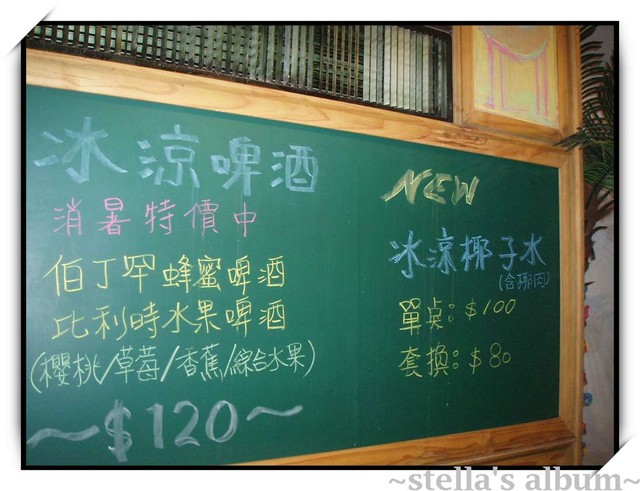 冰涼啤酒
消暑特價中
伯丁罕蜂蜜啤酒
比利時水果啤酒
(櫻桃/草莓/香蕉/綜合水果)
~$120~
NEW
冰涼椰子水
(含椰肉)
單点:$100
套換:$80
~stella's album~